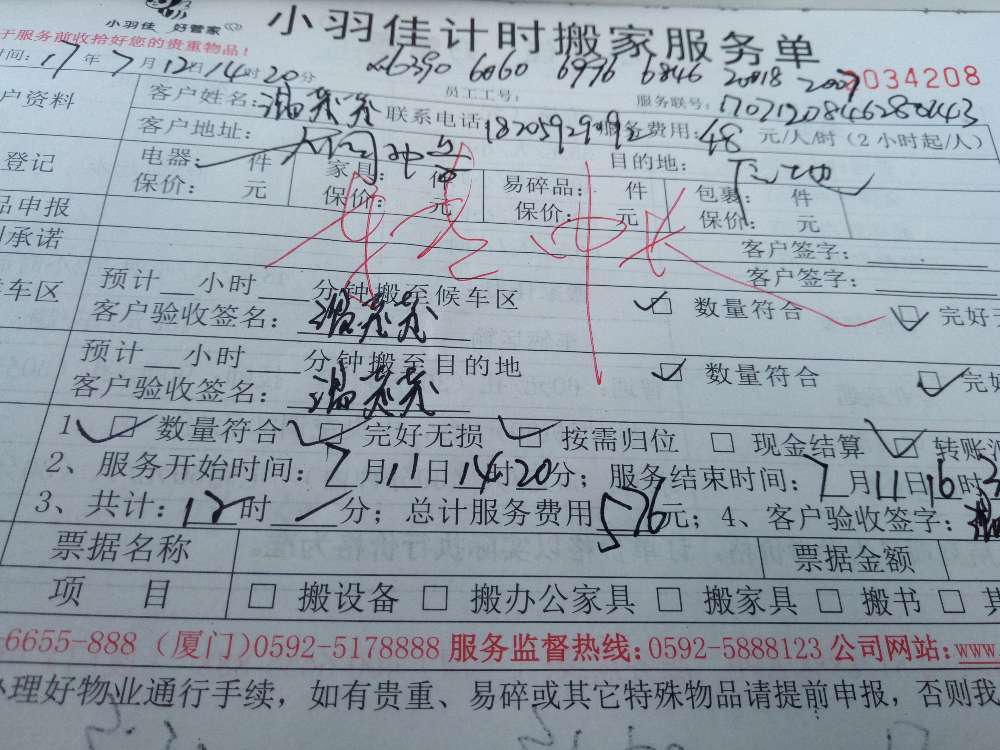 小羽佳 好管家
小羽佳计时搬家服务单
于服务前收拾好您的贵重物品！
时间：17年7月12日14时20分 26390 6060 6996 6846 20018 2009
员工工号： 2034208
户资料 客户姓名： 联系电话： 服务联号：
客户地址： 服务费用：48元/人/时（2小时起/人）
登记 电器： 件 家具： 件 易碎品： 件 包裹： 件
目的地：
品申报 保价： 元 保价： 元 保价： 元 保价： 元
承诺 客户签字：
客户签字：
车区 预计 小时 分钟搬至候车区 数量符合 完好无
客户验收签名：
预计 小时 分钟搬至目的地 数量符合 完好
客户验收签名：
1、 数量符合 完好无损 按需归位 现金结算 转账
2、服务开始时间：7月11日14时20分；服务结束时间：7月11日16时
3、共计：12时 分；总计服务费用576元；4、客户验收签字：
票据名称 票据金额
项 目 搬设备 搬办公家具 搬家具 搬书
-6655-888（厦门)0592-5178888 服务监督热线：0592-5888123 公司网站：www.
办理好物业通行手续，如有贵重、易碎或其它特殊物品请提前申报，否则我